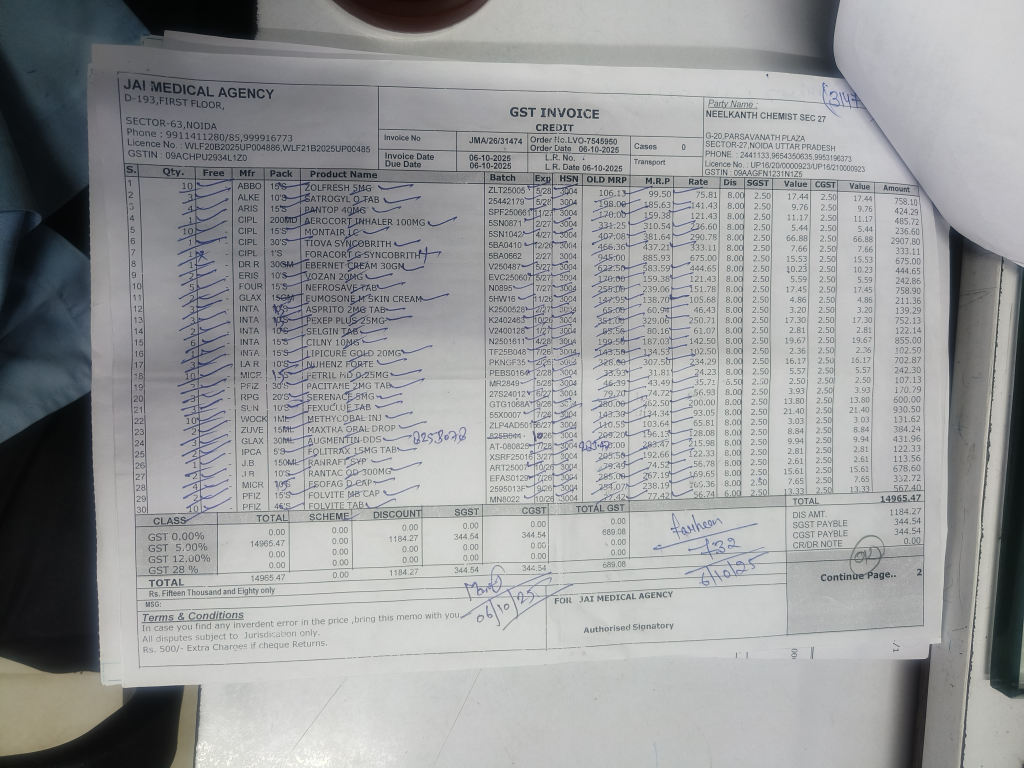 JAI MEDICAL AGENCY
D-193,FIRST FLOOR,
SECTOR-63,NOIDA
Phone : 9911411280/85,999916773
Licence No : WLF20B2025UP004886,WLF21B2025UP00485
GSTIN : 09ACHPU2934L1Z0
GST INVOICE
CREDIT
Invoice No JMA/26/31474 Order No.LVO-7545950
Order Date 06-10-2025
Invoice Date 06-10-2025 L.R. No. -
Due Date 06-10-2025 L.R. Date 06-10-2025
Cases 0
Transport
Party Name :
NEELKANTH CHEMIST SEC 27
G-20,PARSAVANATH PLAZA
SECTOR-27,NOIDA UTTAR PRADESH
PHONE : 2441133,9654350635,9953196373
Licence No : UP16/20/0000923/UP16/210000923
GSTIN : 09AAGFN1231N1Z5
(3147
S. Qty. Free Mfr Pack Product Name Batch Exp HSN OLD MRP M.R.P Rate Dis SGST Value CGST Value Amount
1 10 ABBO 15'S ZOLFRESH 5MG ZLT25005 5/28 3004 106.13 99.50 75.81 8.00 2.50 17.44 2.50 17.44 758.10
2 ALKE 10'S SATROGYL O TAB 25442179 3004 198.00 185.63 141.43 8.00 2.50 9.76 2.50 9.76 424.29
3 ARIS 15'S PANTOP 40MG 3004 170.00 159.38 121.43 8.00 2.50 11.17 2.50 11.17 485.72
4 CIPL 200MD AEROCORT INHALER 100MG 5SN0871 2/27 3004 331.25 310.54 236.60 8.00 2.50 5.44 2.50 5.44 236.60
5 10 CIPL 15'S MONTAIR LC 5SN1042 3004 407.08 381.64 290.78 8.00 2.50 66.88 2.50 66.88 2907.80
6 CIPL 30'S TIOVA SYNCOBRITH 5BA0410 3004 466.36 437.21 333.11 8.00 2.50 7.66 2.50 7.66 333.11
7 CIPL 1'S FORACORT G SYNCOBRITH 5BA0662 2/27 3004 945.00 885.93 675.00 8.00 2.50 15.53 2.50 15.53 675.00
8 DR R 30GM EBERNET CREAM 30GM V250487 3004 622.50 583.59 444.65 8.00 2.50 10.23 2.50 10.23 444.65
9 ERIS 10'S VOZAN 20MG 3004 170.00 159.38 121.43 8.00 2.50 5.59 2.50 5.59 242.86
10 FOUR 15'S NEFROSAVE TAB N0895 7/27 3004 255.00 239.06 151.78 8.00 2.50 17.45 2.50 17.45 758.90
11 GLAX 15GM EUMOSONE M SKIN CREAM 5HW16 11/26 3004 147.95 138.70 105.68 8.00 2.50 4.86 2.50 4.86 211.36
12 INTA ASPRITO 2MG TAB K2500528 3004 65.00 60.94 46.43 8.00 2.50 3.20 2.50 3.20 139.29
13 INTA PEXEP PLUS 25MG K2402463 3004 351.00 329.06 250.71 8.00 2.50 17.30 2.50 17.30 752.13
14 INTA SELGIN TAB V2400128 1/27 3004 80.16 61.07 8.00 2.50 2.81 2.50 2.81 122.14
15 INTA 15'S CILNY 10MG N2501611 3004 199.50 187.03 142.50 8.00 2.50 19.67 2.50 19.67 855.00
16 INTA 15'S LIPICURE GOLD 20MG TF25B048 7/26 3004 143.50 134.53 102.50 8.00 2.50 2.36 2.50 2.36 102.50
17 I.A R 10'S NUHENZ FORTE 3004 328.00 307.50 234.29 8.00 2.50 16.17 2.50 16.17 702.87
18 MICR PETRIL MD 0.25MG 3004 33.93 31.81 24.23 8.00 2.50 5.57 2.50 5.57 242.30
19 PFIZ 30'S PACITANE 2MG TAB MR2849 5/28 3004 46.39 43.49 35.71 6.50 2.50 2.50 2.50 2.50 107.13
20 RPG 20'S SERENACE 5MG 27S24012 3004 79.70 74.72 56.93 8.00 2.50 3.93 2.50 3.93 170.79
21 SUN 10'S FEXUCLUE TAB 3004 280.00 262.50 200.00 8.00 2.50 13.80 2.50 13.80 600.00
22 WOCK 1ML METHYCOBAL INJ 55X0007 3004 143.30 134.34 93.05 8.00 2.50 21.40 2.50 21.40 930.50
23 ZUVE 15ML MAXTRA ORAL DROP 3004 110.55 103.64 65.81 8.00 2.50 3.03 2.50 3.03 131.62
24 GLAX 30ML AUGMENTIN DDS 825B078 3004 209.20 196.13 128.08 8.00 2.50 8.84 2.50 8.84 384.24
25 IPCA 5'S FOLITRAX 15MG TAB 3004 283.47 215.98 8.00 2.50 9.94 2.50 9.94 431.96
26 J.B 150ML RANRAFT SYP 3004 205.50 192.66 122.33 8.00 2.50 2.81 2.50 2.81 122.33
27 J.B 10'S RANTAC OD 300MG ART25007 10/26 3004 79.49 74.52 56.78 8.00 2.50 2.61 2.50 2.61 113.56
28 MICR 10'S ESOFAG D CAP 3004 285.00 267.19 169.65 8.00 2.50 15.61 2.50 15.61 678.60
29 PFIZ 15'S FOLVITE MB CAP 3004 254.07 238.19 166.36 8.00 2.50 7.65 2.50 7.65 332.72
30 10 PFIZ 45'S FOLVITE TAB MN8022 3004 77.42 77.42 56.74 6.00 2.50 13.33 2.50 13.33 567.40
TOTAL 14965.47
CLASS TOTAL SCHEME DISCOUNT SGST CGST TOTAL GST
GST 0.00% 0.00 0.00 0.00 0.00 0.00 0.00
GST 5.00% 14965.47 0.00 1184.27 344.54 344.54 689.08
GST 12.00% 0.00 0.00 0.00 0.00 0.00 0.00
GST 28 % 0.00 0.00 0.00 0.00 0.00 0.00
TOTAL 14965.47 0.00 1184.27 344.54 344.54 689.08
DIS AMT. 1184.27
SGST PAYBLE 344.54
CGST PAYBLE 344.54
CR/DR NOTE 0.00
Rs. Fifteen Thousand and Eighty only
MSG:
Continue Page.. 2
732
6/10/25
06/10/25
Terms & Conditions
In case you find any inverdent error in the price ,bring this memo with you
All disputes subject to Jurisdication only.
Rs. 500/- Extra Charges if cheque Returns.
FOR JAI MEDICAL AGENCY
Authorised Signatory